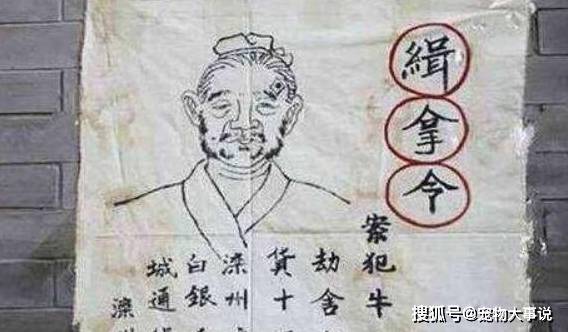 緝拿令
案犯牛
劫舍
貨十
滦州
白銀
城通
滦
搜狐号@宠物大事说